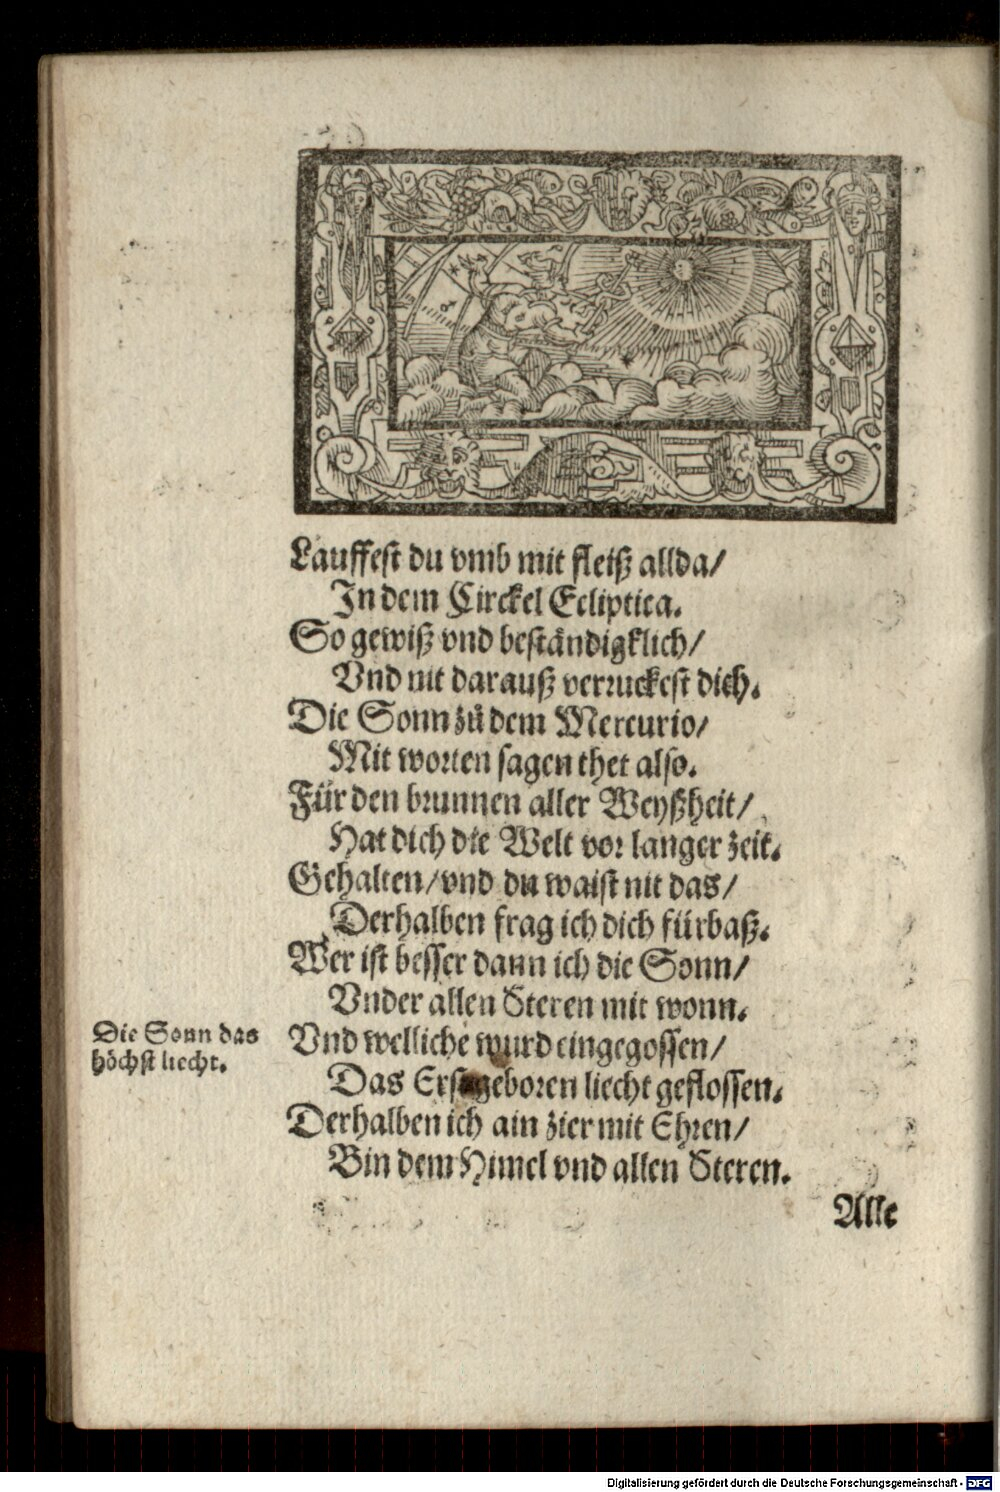 Lauffest du vmb mit fleiß allda/
In dem Circkel Ecliptica.
So gewiß vnd beständigklich/
Vnd nit darauß verruckest dich.
Die Sonn zů dem Mercurio/
Mit worten sagen thet also.
Für den brunnen aller Weyßheit/
Hat dich die Welt vor langer zeit.
Gehalten/vnd du waist nit das/
Derhalben frag ich dich fürbaß.
Wer ist besser dann ich die Sonn/
Vnder allen Steren mit wonn.
Die Sonn das
höchst liecht.
Vnd welliche wurd eingegossen/
Das Erstgeboren liecht geflossen.
Derhalben ich ain zier mit Ehren/
Bin dem Himel vnd allen Steren.
Alle
Digitalisierung gefördert durch die Deutsche Forschungsgemeinschaft - DFG